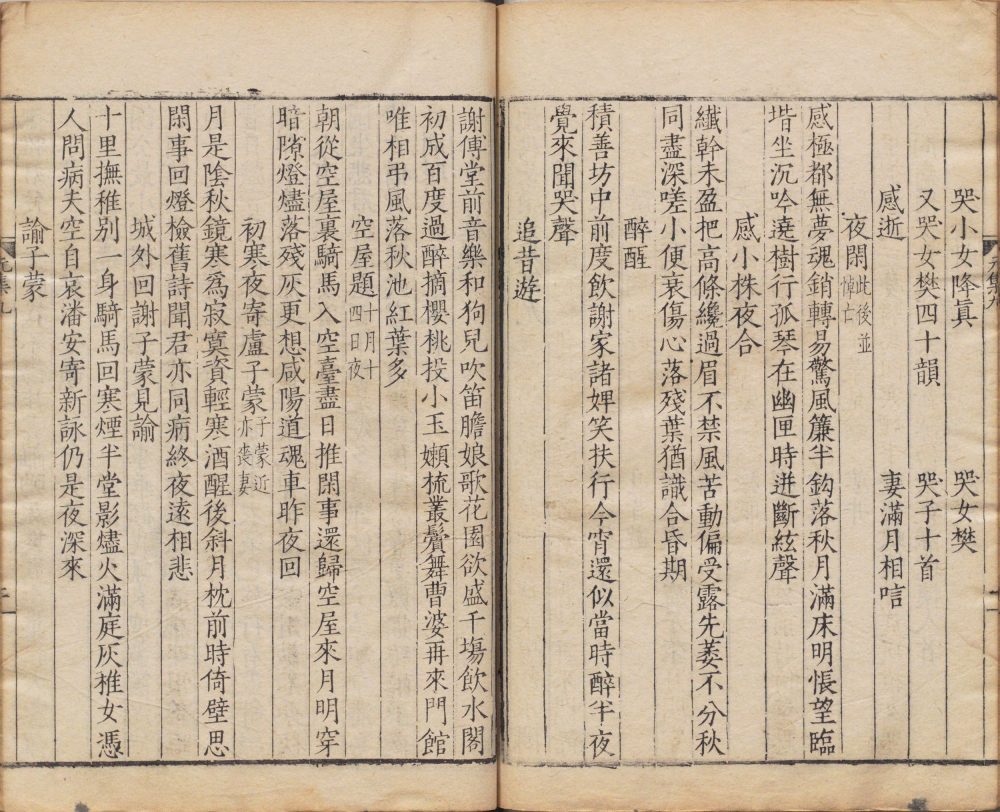 哭小女降真 哭女樊
又哭女樊四十韻 哭子十首
感逝 妻滿月相唁
夜閑此後並悼亡
感極都無夢魂銷轉易驚風簾半鈎落秋月滿床明悵望臨
堦坐沉吟遶樹行孤琴在幽匣時迸斷絃聲
感小株夜合
纖幹未盈把高條纔過眉不禁風苦動偏受露先萎不分秋
同盡深嗟小便衰傷心落殘葉猶識合昏期
醉醒
積善坊中前度飲謝家諸婢笑扶行今宵還似當時醉半夜
覺來聞哭聲
追昔遊
謝傅堂前音樂和狗兒吹笛膽娘歌花園欲盛千塲飲水閣
初成百度過醉摘櫻桃投小玉嬾梳叢鬢舞曹婆再來門館
唯相弔風落秋池紅葉多
空屋題十月十四日夜
朝從空屋裏騎馬入空臺盡日推閑事還歸空屋來月明穿
暗隙燈燼落殘灰更想咸陽道魂車昨夜回
初寒夜寄盧子蒙子蒙近亦喪妻
月是陰秋鏡寒爲寂寞資輕寒酒醒後斜月枕前時倚壁思
閑事回燈檢舊詩聞君亦同病終夜逺相悲
城外回謝子蒙見諭
十里撫柩別一身騎馬回寒煙半堂影燼火滿庭灰稚女憑
人問病夫空自哀潘安寄新詠仍是夜深來
諭子蒙